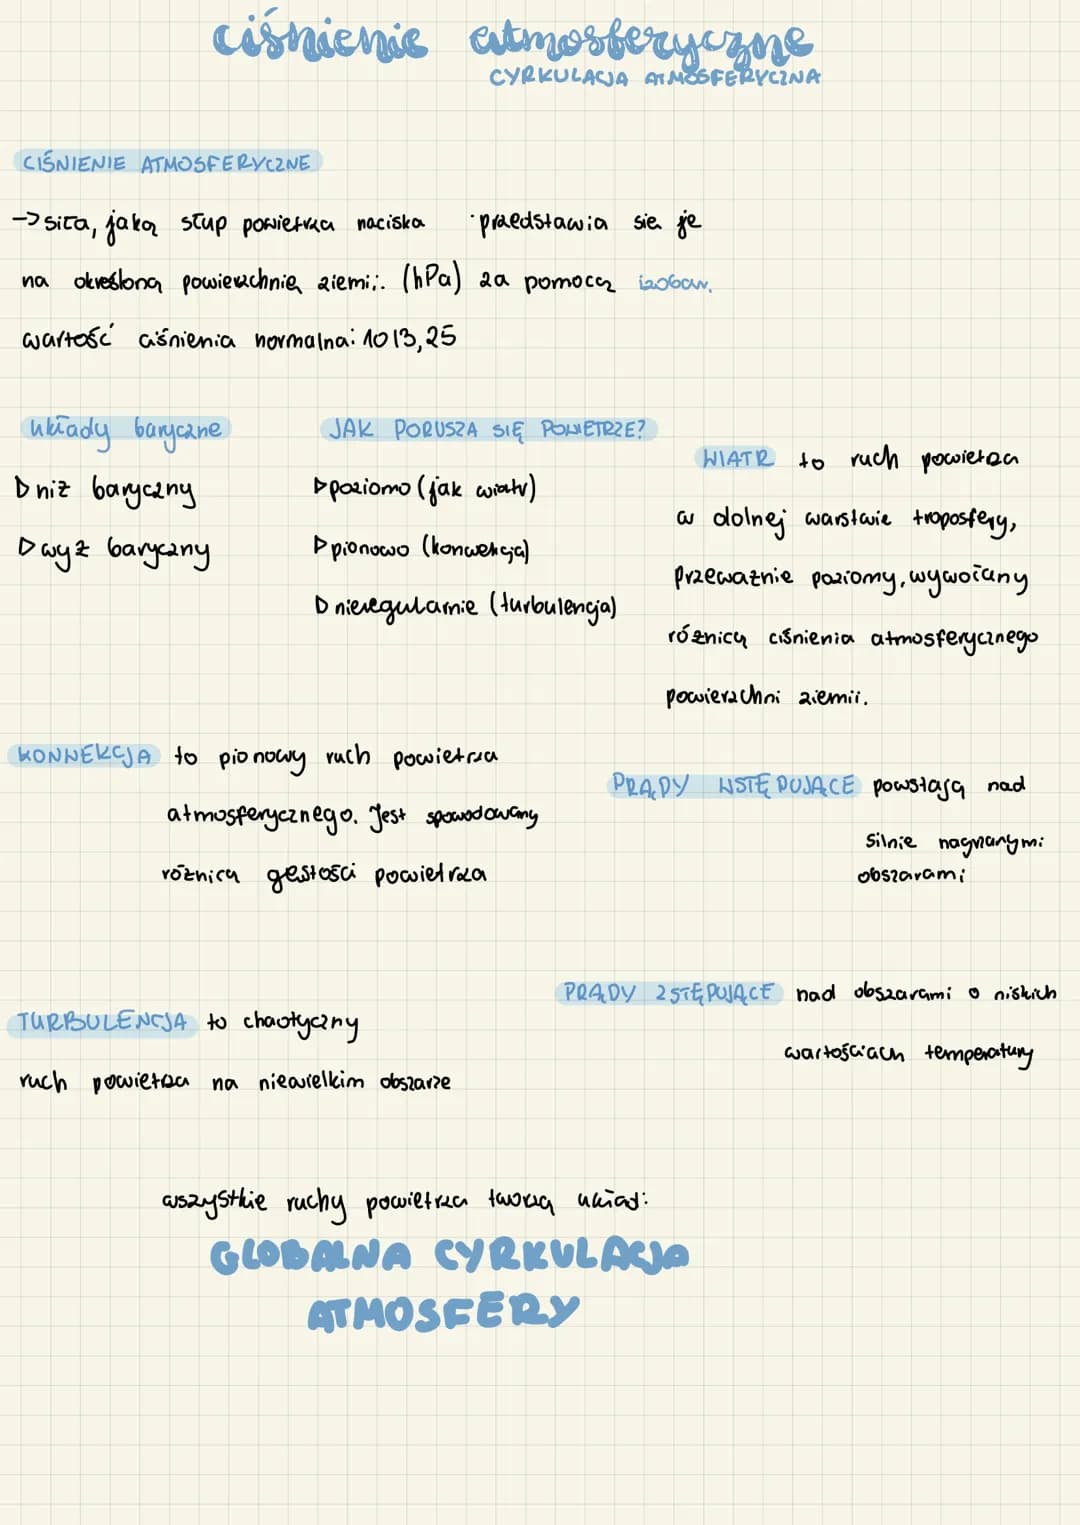 ciśnienie atmosferyczne
CYRKULACJA ATMOSFERYCZNA
CIŚNIENIE ATMOSFERYCZNE
-> siła, jaką słup powietrza naciska
na określoną powierzchnię ziemi: (hPa)
wartość ciśnienia normalna: 1013,25
· przedstawia się je
za pomocą izobar.
układy baryczne
▷ niż baryczny
▷ wyż baryczny
JAK PORUSZA SIĘ POWIETRZE?
▷ poziomo (jak wiatr)
▷ pionowo (konwekcja)
▷ nieregularnie (turbulencja)
WIATR to ruch powietrza
w dolnej warstwie troposfery,
przeważnie poziomy, wywołany
różnicą ciśnienia atmosferycznego
powierzchni ziemii.
KONWEKCJA to pionowy ruch powietrza
atmosferycznego. Jest spowodowany
różnicą gęstości powietrza
PRĄDY WSTĘPUJĄCE powstają nad
silnie nagrzanymi
obszarami
PRĄDY ZSTĘPUJĄCE nad obszarami o niskich
wartościach temperatury
TURBULENCJA to chaotyczny
ruch powietrza na niewielkim obszarze
wszystkie ruchy powietrza tworzą układ:
GLOBALNA CYRKULACJA
ATMOSFERY